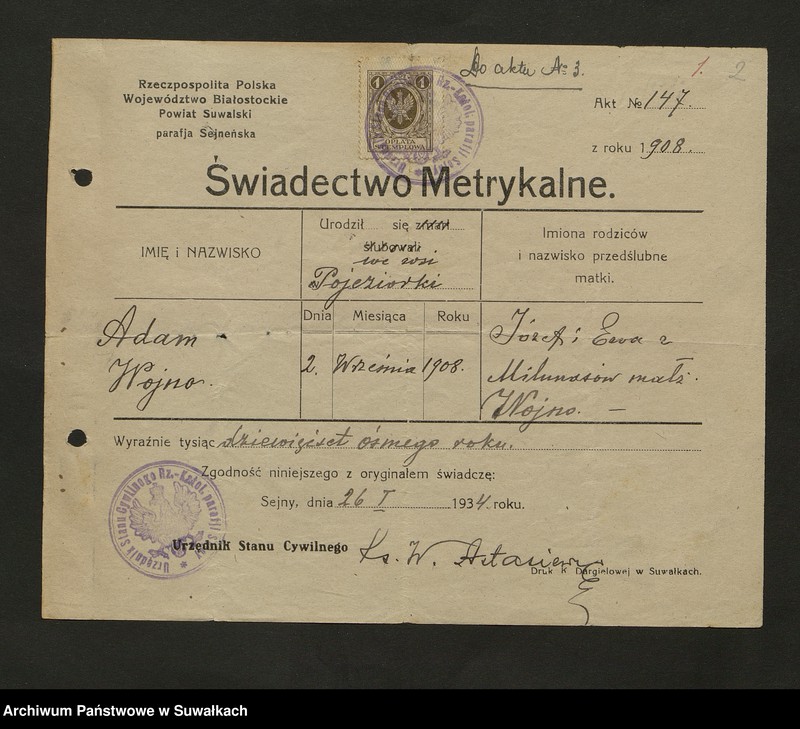 Do aktu № 3.
1. 2
Rzeczpospolita Polska
Województwo Białostockie
Powiat Suwalski
parafja Sejneńska
1 1
OPŁATA
STEMPLOWA
Akt № 147.
z roku 1908.
Świadectwo Metrykalne.
IMIĘ i NAZWISKO
Urodził się zmarł
ślubowali
we wsi
Pojeziorki
Imiona rodziców
i nazwisko przedślubne
matki.
Dnia Miesiąca Roku
Adam
Wojno.
2. Września 1908.
Józef i Ewa z
Milunasów małż.
Wojno. —
Wyraźnie tysiąc dziewięćset ósmego roku.
Zgodność niniejszego z oryginałem świadczę:
Sejny, dnia 26 I 1934. roku.
Urzędnik Stanu Cywilnego Rz.-Katol. parafji
Urzędnik Stanu Cywilnego
Ks. W. Astasiewicz
Druk K. Dargielowej w Suwałkach.
Archiwum Państwowe w Suwałkach